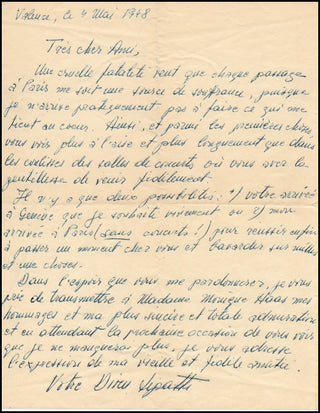 Valence, le 4 Mai 1948
Très cher Ami,
Une cruelle fatalité veut que chaque passage
à Paris me soit une source de souffrance, puisque
je n'arrive pratiquement pas à faire ce qui me
tient au coeur. Ainsi, et parmi les premières choses,
vous voir plus à l'aise et plus longuement que dans
les coulisses des salles de concerts où vous avez la
gentillesse de venir fidèlement.
Il n'y a que deux possibilités: 1) votre arrivée
à Genève que je souhaite vivement ou 2) mon
arrivée à Paris (sans concerts!) pour réussir enfin
à passer un moment chez vous et bavarder sur mille
et une choses.
Dans l'espoir que vous me pardonnerez, je vous
prie de transmettre à Madame Monique Haas mes
hommages et ma plus sincère et totale admiration
et en attendant la prochaine occasion de vous voir
que je ne manquerai plus, je vous adresse
l'expression de ma vieille et fidèle amitié.
Votre Dinu Lipatti